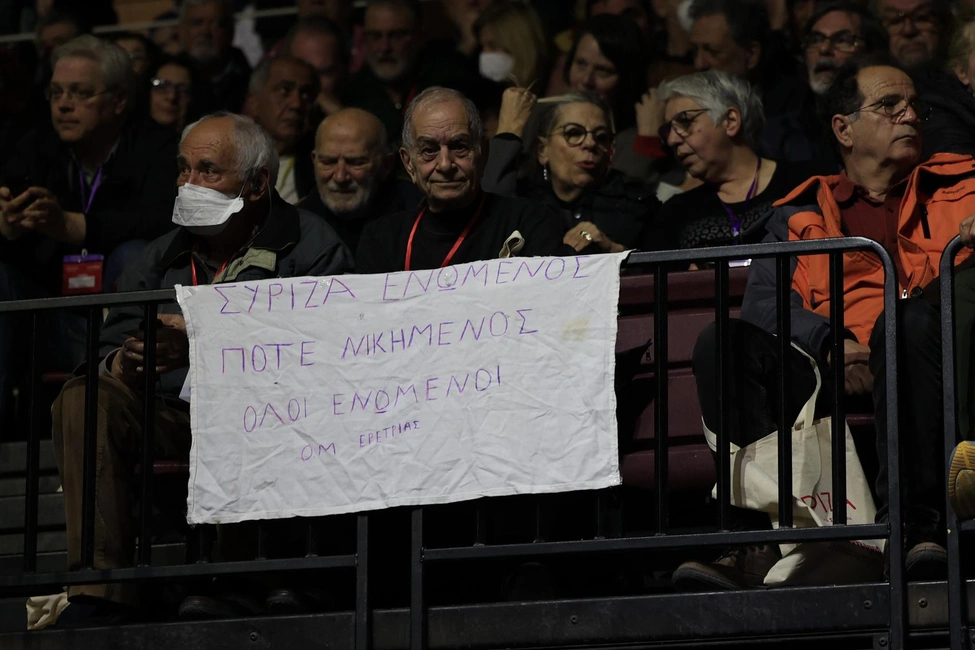 ΣΥΡΙΖΑ ΕΝΩΜΕΝΟΣ
ΠΟΤΕ ΝΙΚΗΜΕΝΟΣ
ΟΛΟΙ ΕΝΩΜΕΝΟΙ
ΟΜ ΕΡΕΤΡΙΑΣ
ΡΙΖΑ